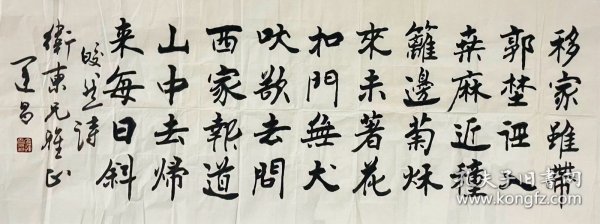 移家雖帶
郭埜迳入
桒麻近種
籬邊菊秋
來未著花
扣門無犬
吠欲去問
西家報道
山中去歸
来每日斜
皎然詩
衛東兄雅正
昌
孔夫子旧书网
www.kongfz.com